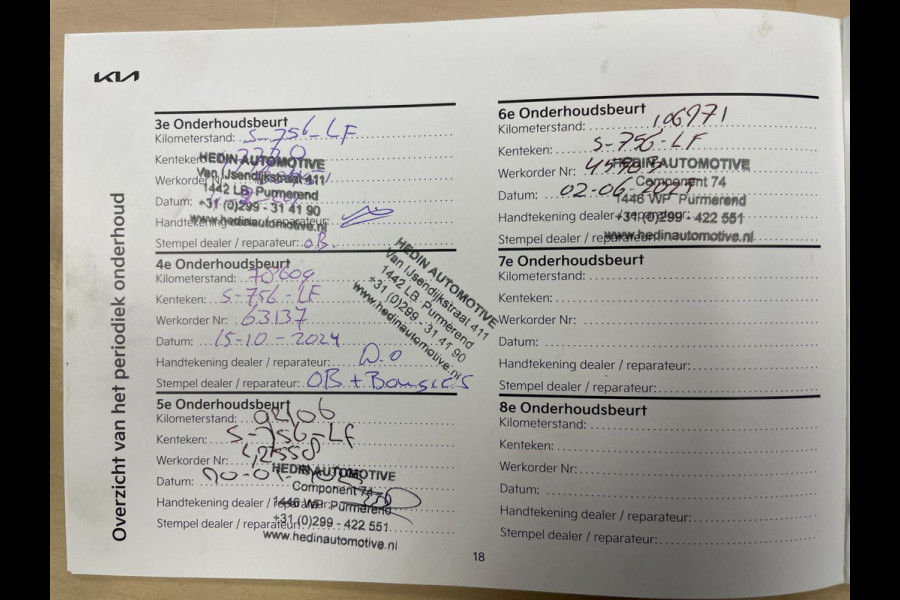 KIA
Overzicht van het periodiek onderhoud
3e Onderhoudsbeurt
Kilometerstand: S-756-LF
Kenteken:
Werkorder Nr:
Datum:
Handtekening dealer / reparateur:
Stempel dealer / reparateur: OB
HEDIN AUTOMOTIVE
Van IJsendijkstraat 411
1442 LB Purmerend
+31 (0)299 - 31 41 90
www.hedinautomotive.nl
4e Onderhoudsbeurt
Kilometerstand: 78609
Kenteken: S-756-LF
Werkorder Nr: 63137
Datum: 15-10-2024
Handtekening dealer / reparateur: D.O
Stempel dealer / reparateur: OB + Bougie's
HEDIN AUTOMOTIVE
Van IJsendijkstraat 411
1442 LB Purmerend
+31 (0)299 - 31 41 90
www.hedinautomotive.nl
5e Onderhoudsbeurt
Kilometerstand:
Kenteken: S-756-LF
Werkorder Nr: 42558
Datum:
Handtekening dealer / reparateur:
Stempel dealer / reparateur:
HEDIN AUTOMOTIVE
Component 74
1446 WP Purmerend
+31 (0)299 - 422 551
www.hedinautomotive.nl
6e Onderhoudsbeurt
Kilometerstand: 106971
Kenteken: S-756-LF
Werkorder Nr:
Datum: 02-06
Handtekening dealer / reparateur:
Stempel dealer / reparateur:
HEDIN AUTOMOTIVE
Component 74
1446 WP Purmerend
+31 (0)299 - 422 551
www.hedinautomotive.nl
7e Onderhoudsbeurt
Kilometerstand:
Kenteken:
Werkorder Nr:
Datum:
Handtekening dealer / reparateur:
Stempel dealer / reparateur:
8e Onderhoudsbeurt
Kilometerstand:
Kenteken:
Werkorder Nr:
Datum:
Handtekening dealer / reparateur:
Stempel dealer / reparateur:
18